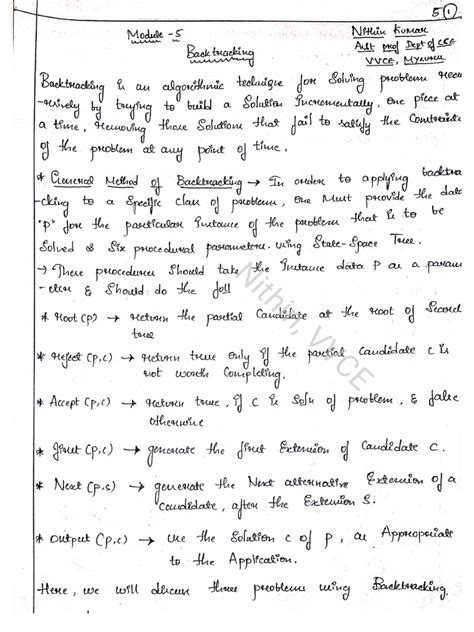 5 1
Module - 5
Nithin Kumar
Asst prof Dept of CSE
VVCE, Mysuru
Backtracking
Backtracking is an algorithmic technique for Solving problems recu
-rsively by trying to build a Solution Incrementally, one piece at
a time, removing those Solutions that fail to satisfy the Constraints
of the problem at any point of time.
* General Method of Backtracking → In order to applying backtra
-cking to a Specific class of problems, one Must provide the data
"p" for the particular Instance of the problem that is to be
Solved & Six procedural parameters. using State-Space Tree.
→ These procedures Should take the Instance data P as a param
-eter & Should do the foll
* Root (p) → return the partial Candidate at the root of Second
tree
* Reject (p,c) → return true only if the partial Candidate c is
not worth Completing.
* Accept (p,c) → return true, if c is Soln of problem, & false
otherwise
* first (p,c) → generate the first Extension of Candidate c.
* Next (p,s) → generate the Next alternative Extension of a
Candidate, after the Extension S.
* output (p,c) → use the Solution c of p, as Appropriate
to the Application.
Here, we will discuss three problems using Backtracking.
Nithin, VVCE